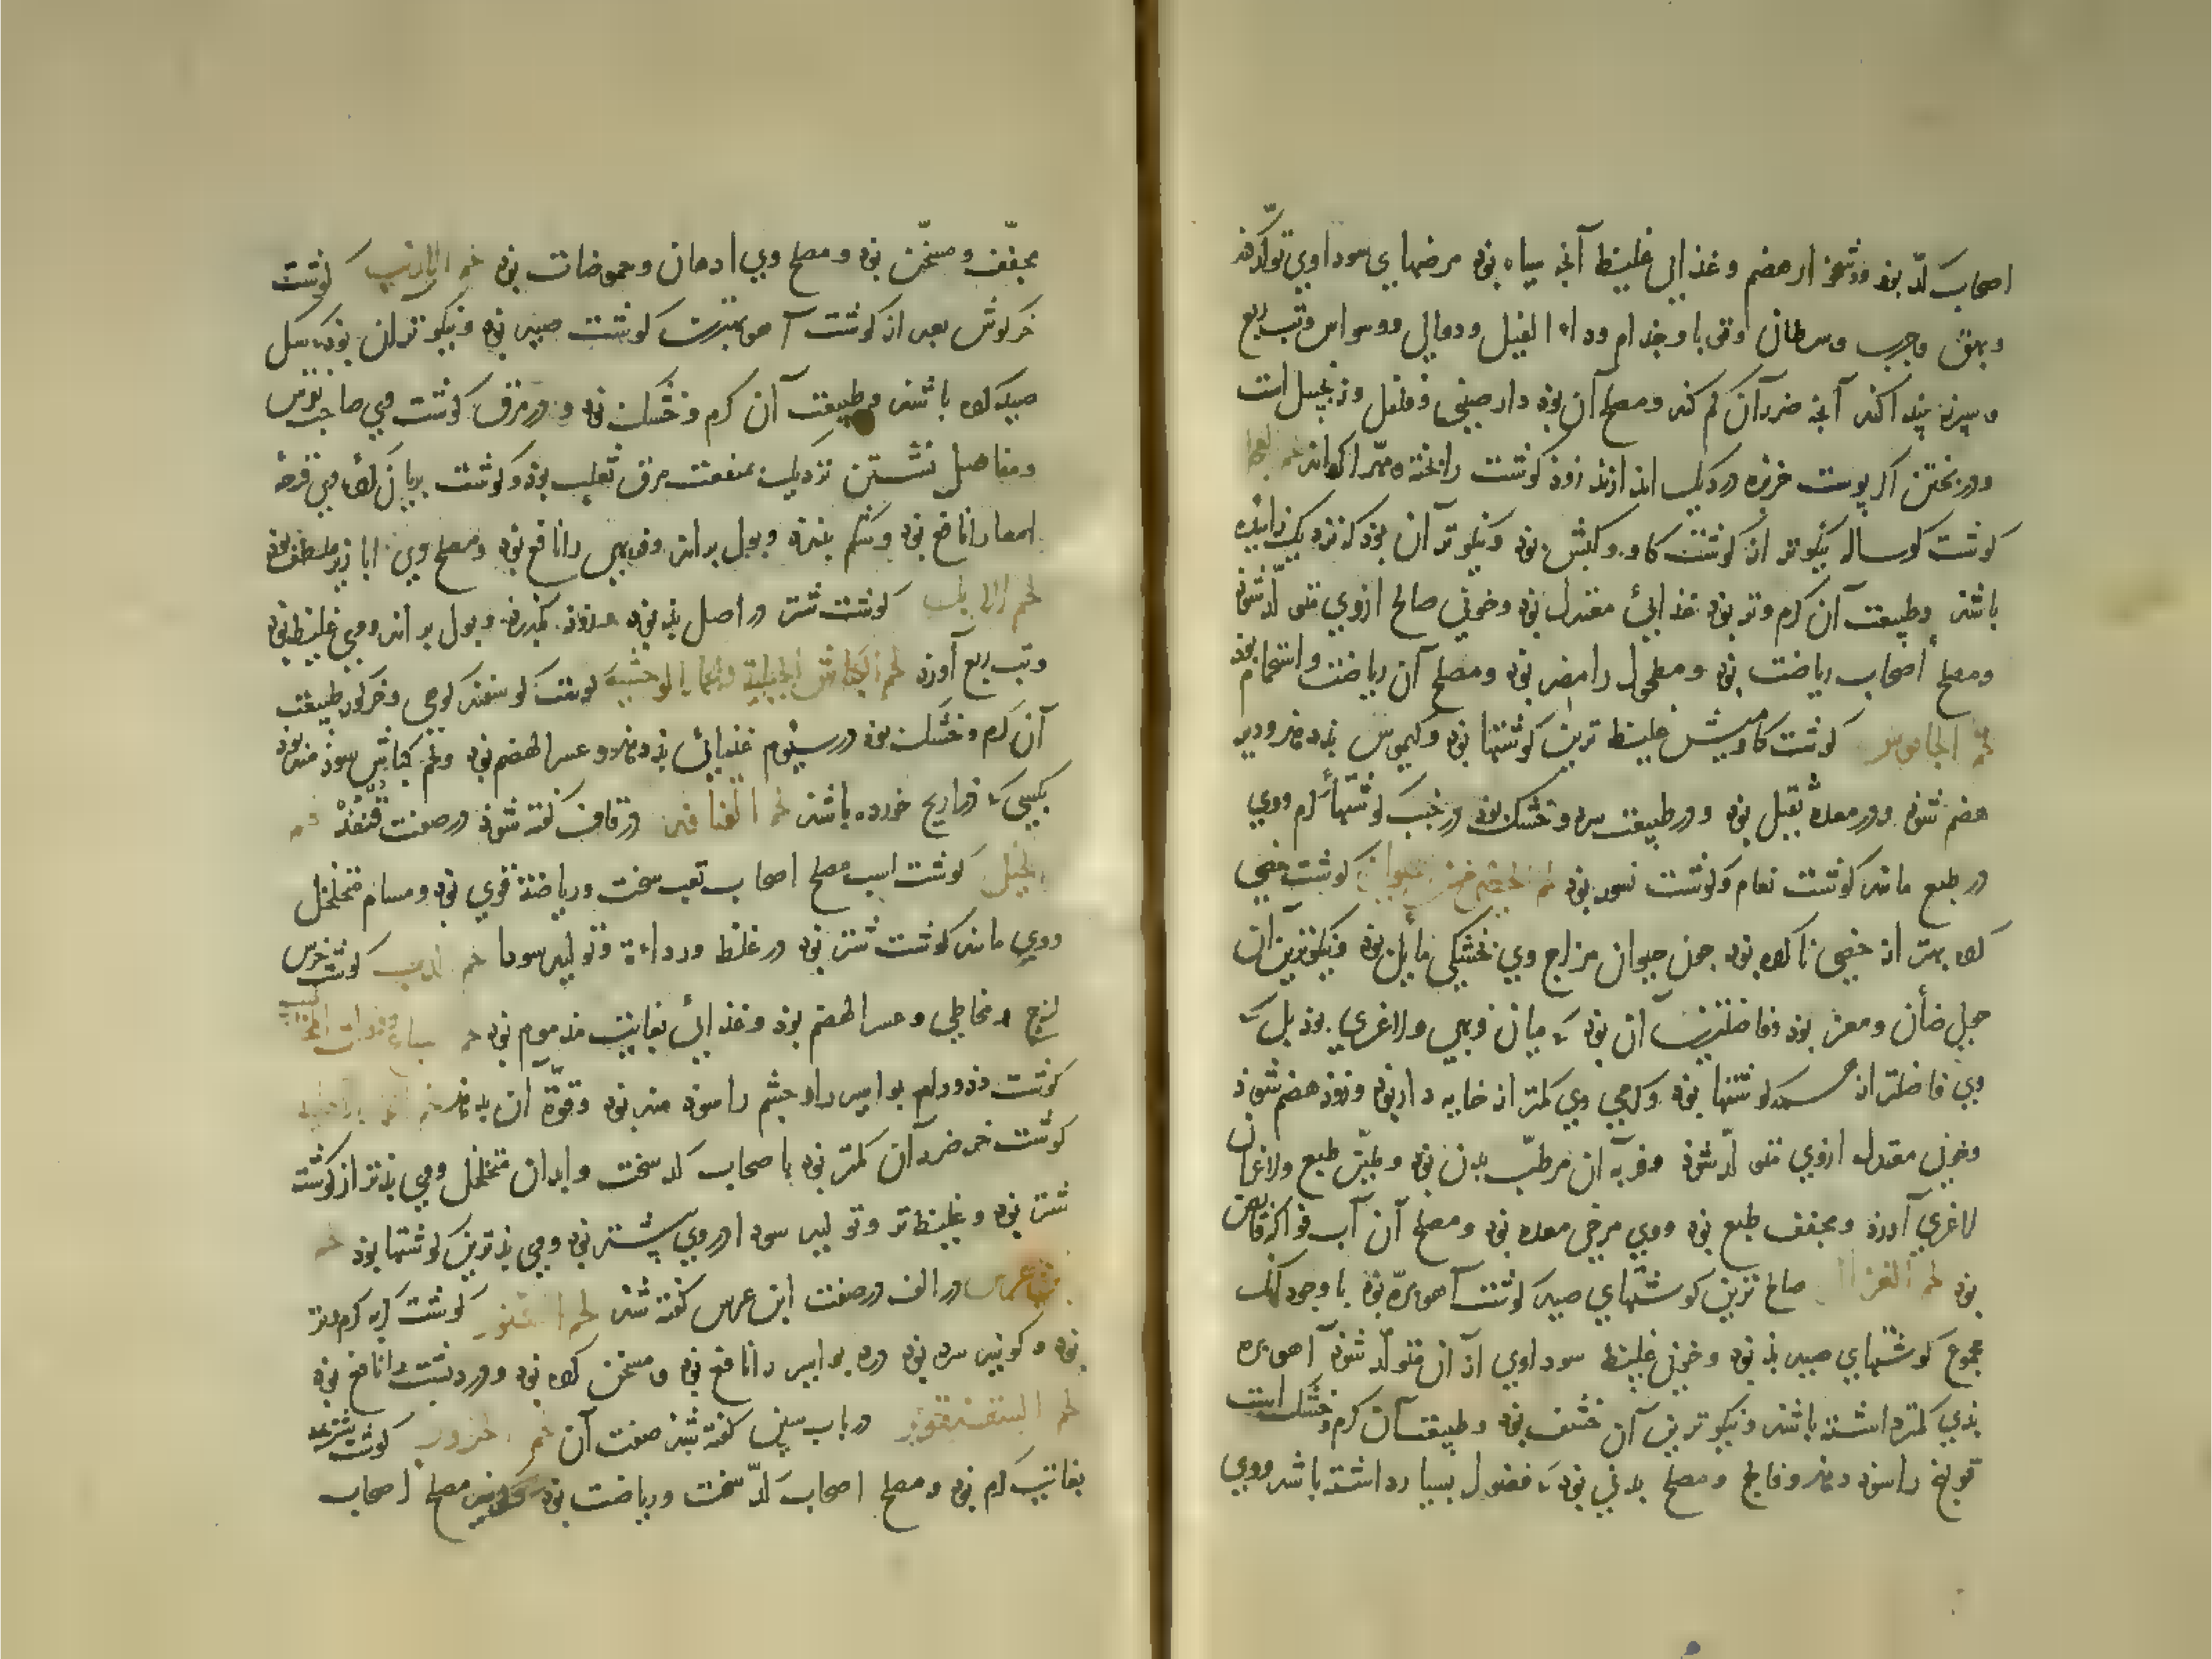 اصحاب کدّ بود ودشخوار هضم وغذایی غلیظ آنچه سیاه بود مرضهای سوداوی تولّد کند
وبهق وجرب وسرطان وقوبا وجذام وداء الفیل ودوالی ووسواس وتب ربع
وسپرز پیدا کند آنچه ضرر آن کم کند ومصلح آن بود دارصینی وفلفل وزنجبیل است
ودر پختن اکر پوست خربزه در دیک اندازند زود کوشت را پخته ومهرا کرداند لحم العجل
کوشت کوساله نیکوتر از کوشت کاو وکبش بود ونیکوتر آن بود که نزدیک زاییده
باشد وطبیعت آن کرم وتر بود غذایی معتدل بود وخونی صالح ازوی متولّد شود
ومصلح اصحاب ریاضت بود ومطحول را مضر بود ومصلح آن ریاضت واستحمام بود
لحم الجاموس کوشت کاومیش غلیظ ترین کوشتها بود وکیموس بد دهد ودیر
هضم شود ودر معده ثقیل بود ودر طبیعت سرد وخشک بود در جنب کوشتها کرم ووی
در طبع مانند کوشت نعام وکوشت نسور بود لحم الخصی من الحیوان کوشت خصی
کرده بهتر از خصی ناکرده بود جون حیوان مزاج وی بخشکی مایل بود ونیکوترین آن
حولی ضأن ومعز بود وفاضلترین آن بود که میان فربهی ولاغری بود بل که
وی فاضلتر از همه کوشتها بود وکرمی وی کمتر از خایه دار بود وزود هضم شود
وخونی معتدل ازوی متولّد شود وفربه آن مرطّب بدن بود وملیّن طبع ولاغر آن
لاغری آورد ومجفف طبع بود ووی مرخی معده بود ومصلح آن آب فواکه قابض
بود لحم الغزال صالح ترین کوشتهای صید کوشت آهو برّه بود با وجود آنک
مجموع کوشتهای صید بد بود وخونی غلیظ سوداوی از آن متولّد شود آهو بره
بدی کمتر داشته باشد ونیکوترین آن خشف بود وطبیعت آن کرم وخشک است
قولنج را سود دهد وفالج ومصلح بدنی بود که فضول بسیار داشته باشد ووی
مجفّف ومسخّن بود ومصلح وی ادهان وحموضات بود لحم الارنب کوشت
خرکوش بعد از کوشت آهو بهترین کوشت صید بود ونیکوترین آن بود که سک
صید کرده باشد وطبیعت آن کرم وخشک بود ودر مرق کوشت وی صاحب نقرس
ومفاصل نشستن نزدیک بمنفعت مرق ثعلب بود وکوشت بریان کرده وی قرحه
امعا را نافع بود وشکم ببندد وبول براند وفربهی را نافع بود ومصلح وی ابازیر ملطف بود
لحم الابل کوشت شتر در اصل بد بود بکدرد وبول براند ووی غلیظ بود
وتب ربع آورد لحم الکباش الجبلیة والحمار الوحشیة کوشت کوسفند کوهی وخرکور طبیعت
آن کرم وخشک بود در سیوم غذایی بد دهد وعسر الهضم بود ولحم کباش سودمند بود
بکسی که ذراریح خورده باشد لحم القنافذ در قاف کفته شود در صفت قنفذ لحم
الخیل کوشت اسب مصلح اصحاب تعب سخت وریاضة قوی بود ومسام متخلخل
ووی مانند کوشت شتر بود در غلظ ورداءة وتولید سودا لحم الدب کوشت خرس
لزج ومخاطی وعسر الهضم بود وغذایی بغایت مذموم بود لحم سباع وذوات المخالیب
کوشت دد ودام بواسیر را وچشم را سودمند بود وقوّة آن بدهد لحم
کوشت خر ضرر آن کمتر بود باصحاب کد سخت وابدان متخلخل ووی بدتر از کوشت
شتر بود وغلیظ تر وتولید سودا از وی بیشتر بود ووی بدترین کوشتها بود لحم
ابن عرس در الف در صفت ابن عرس کفته شد لحم السنور کوشت کربه کرم وتر
بود وکویند سرد بود درد بواسیر را نافع بود ومسخن کرده بود ودرد پشت را نافع بود
لحم السقنقور در باب سین کفته شد صفت آن لحم الجزور کوشت شتر بچه
بغایت کرم بود ومصلح اصحاب کدّ سخت وریاضت بود مصلح اصحاب